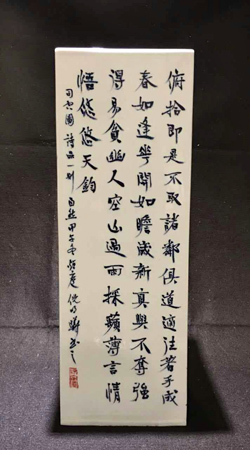 俯拾即是不取諸鄰俱道適往著手成
春如逢花開如瞻歲新真與不奪強
得易貧幽人空山過雨採蘋薄言情
悟悠悠天鈞
司空圖詩品一則 自然 甲午冬 倪